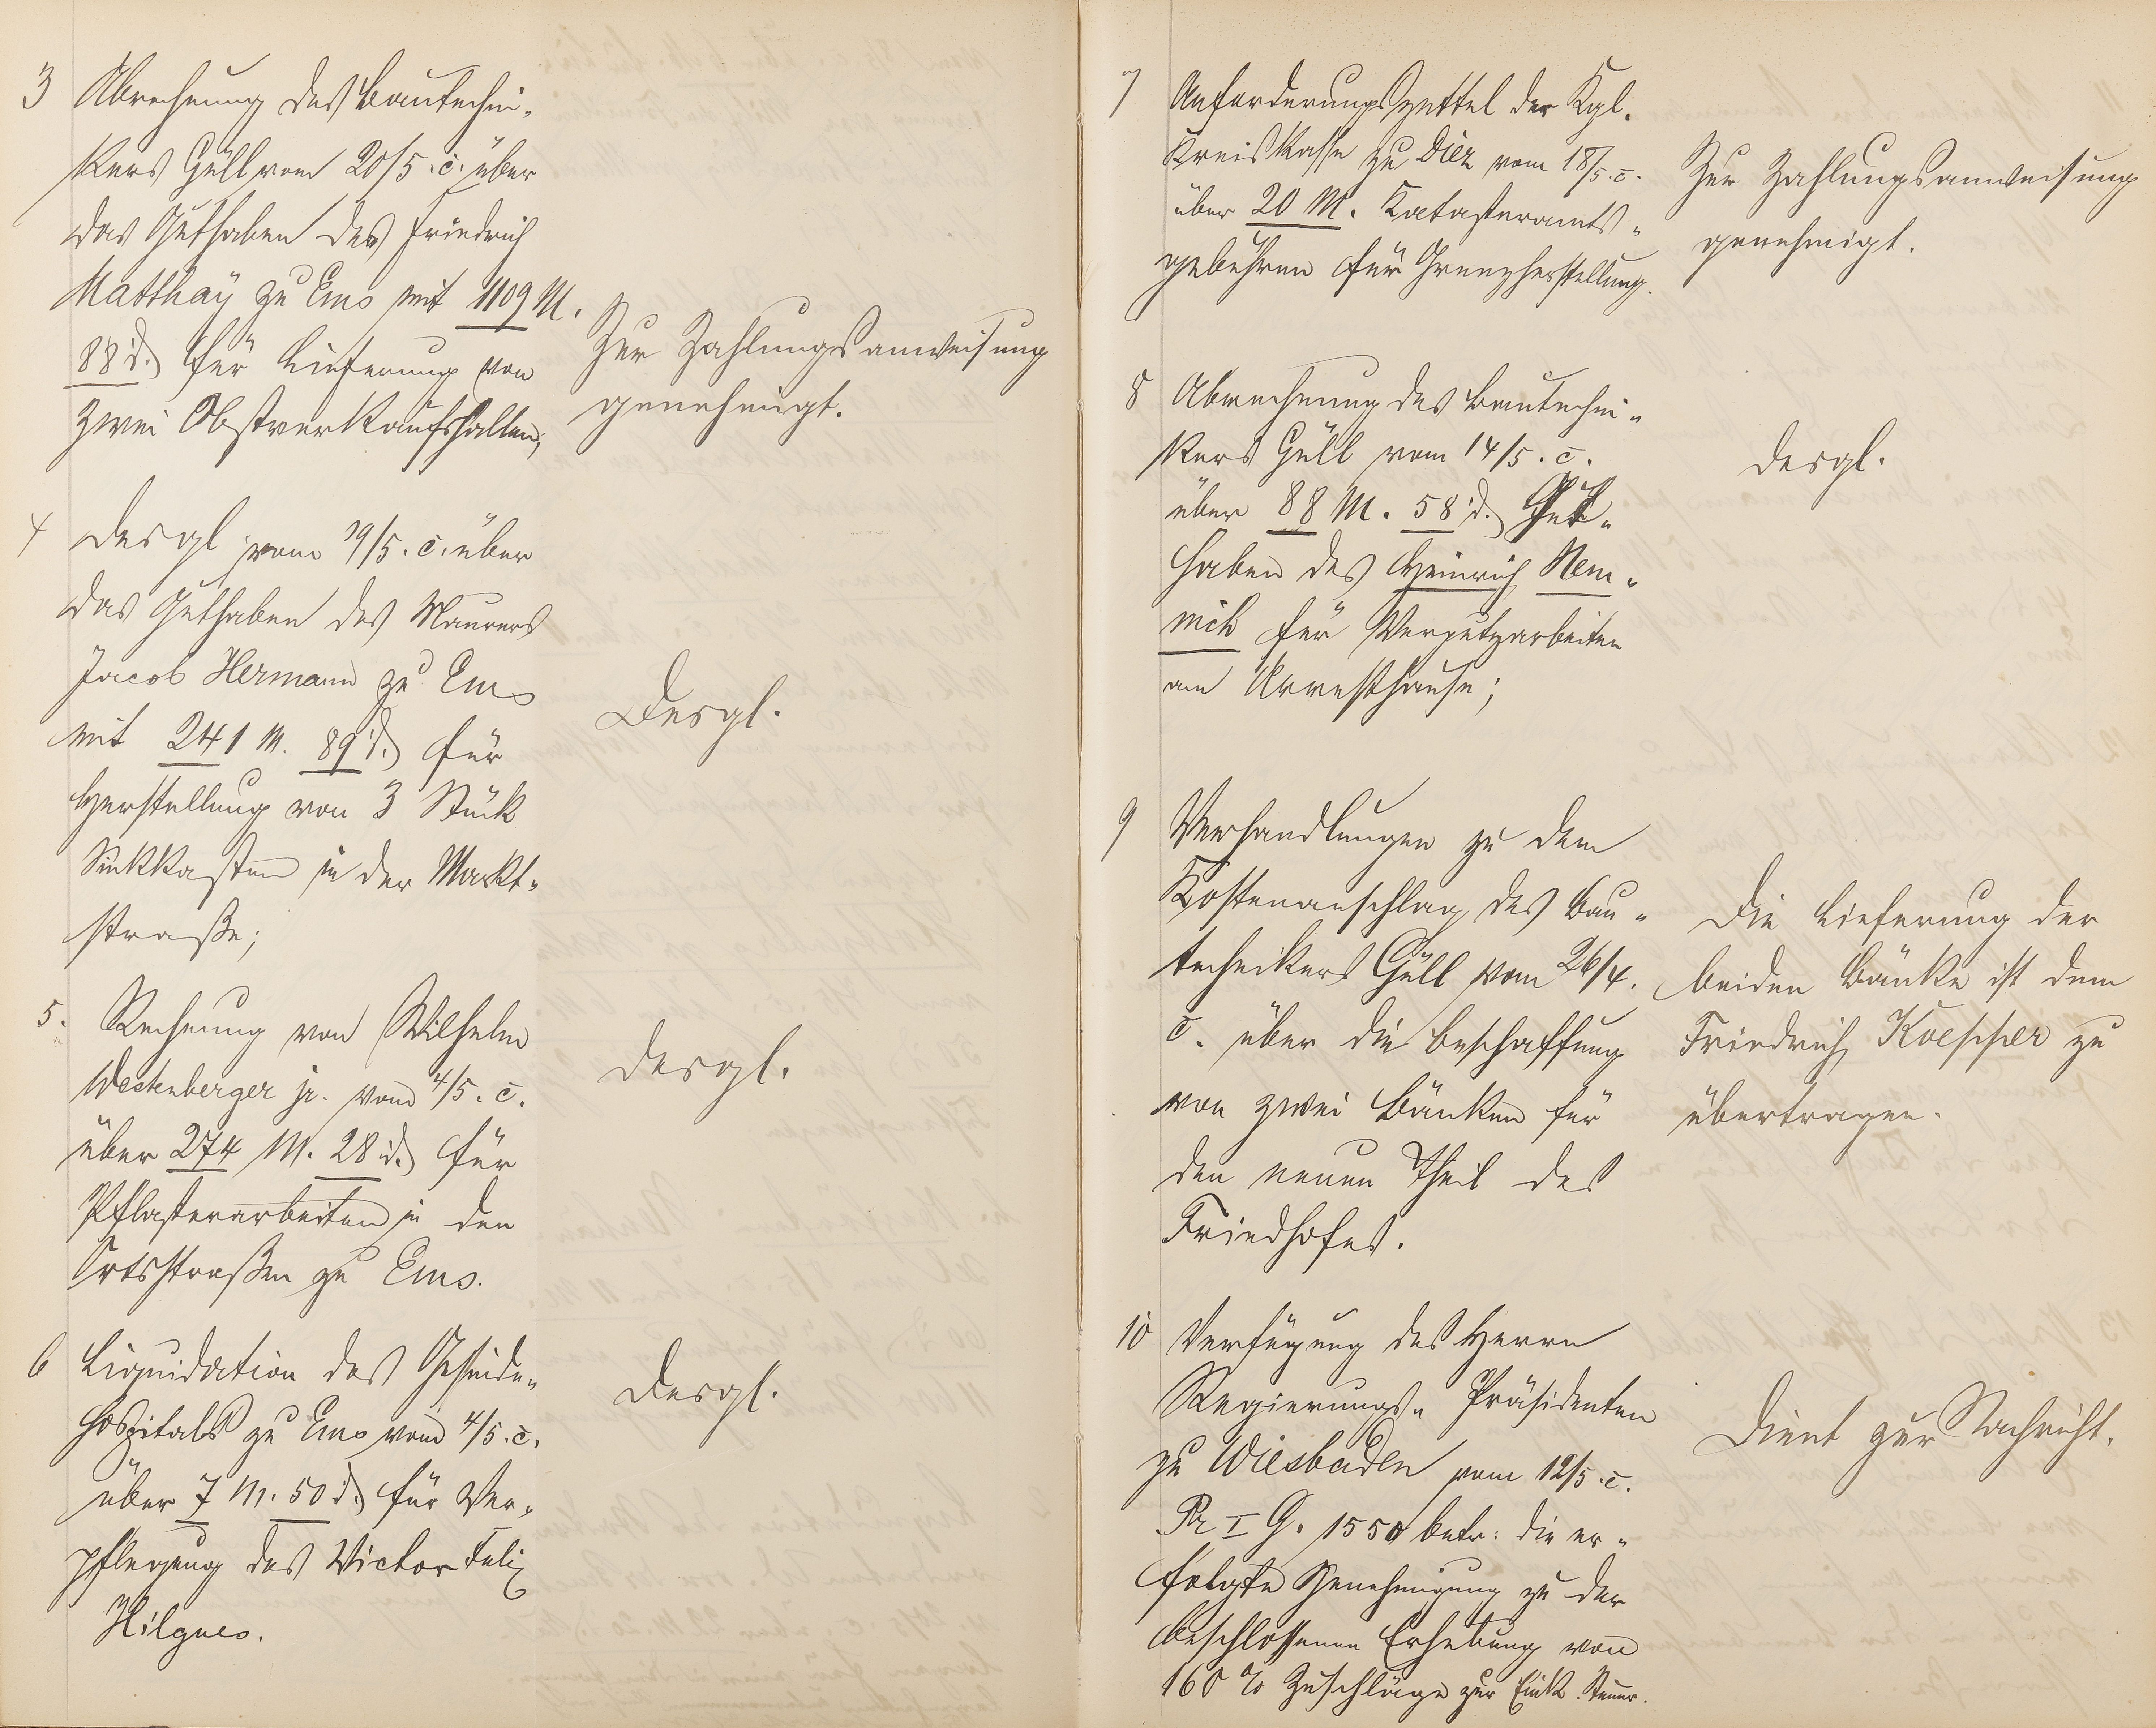 3 Abrechnung des Bautechni-
kers Güll vom 20/5. c. über
das Guthaben des Friedrich
Matthäy zu Ems mit 1109 M.
88 d. für Lieferung von
zwei Obstverkaufshallen;
Zur Zahlungsanweisung
genehmigt.
4 desgl vom 19/5. c. über
das Guthaben des Maurers
Jacob Hermann zu Ems
mit 241 M. 89 d. für
Herstellung von 3 Stück
Sinkkasten in der Markt-
straße;
Desgl.
5. Rechnung von Wilhelm
Westenberger jr. vom 4/5. c.
über 274 M. 28 d. für
Pflasterarbeiten in den
Ortsstraßen zu Ems.
desgl.
6 Liquidation des Gesinde-
hospitals zu Ems vom 4/5. c.
über 7 M. 50 d. für Ver-
pflegung des Victor Felix
Hilgues.
Desgl.
7 Anforderungszettel der Kgl.
Kreiskasse zu Diez vom 18/5. c.
über 20 M. Katasteramts-
gebühren für Grenzherstellung.
Zur Zahlungsanweisung
genehmigt.
8 Abrechnung des Bautechni-
kers Güll vom 14/5. c.
über 88 M. 58 d. Gut-
haben des Heinrich Nem-
nich für Verputzarbeiten
am Arresthause;
desgl.
9 Verhandlungen zu dem
Kostenanschlag des Bau-
technikers Güll vom 26/4.
c. über die Beschaffung
von zwei Bänken für
den neuen Theil des
Friedhofes.
Die Lieferung der
beiden Bänke ist dem
Friedrich Koepper zu
übertragen.
10 Verfügung des Herrn
Regierungs-Präsidenten
zu Wiesbaden vom 12/5. c.
Pr I G. 1550 betr: die er-
folgte Genehmigung zu der
beschlossenen Erhebung von
160 % Zuschläge zur Eink. Steuer.
Dient zur Nachricht.